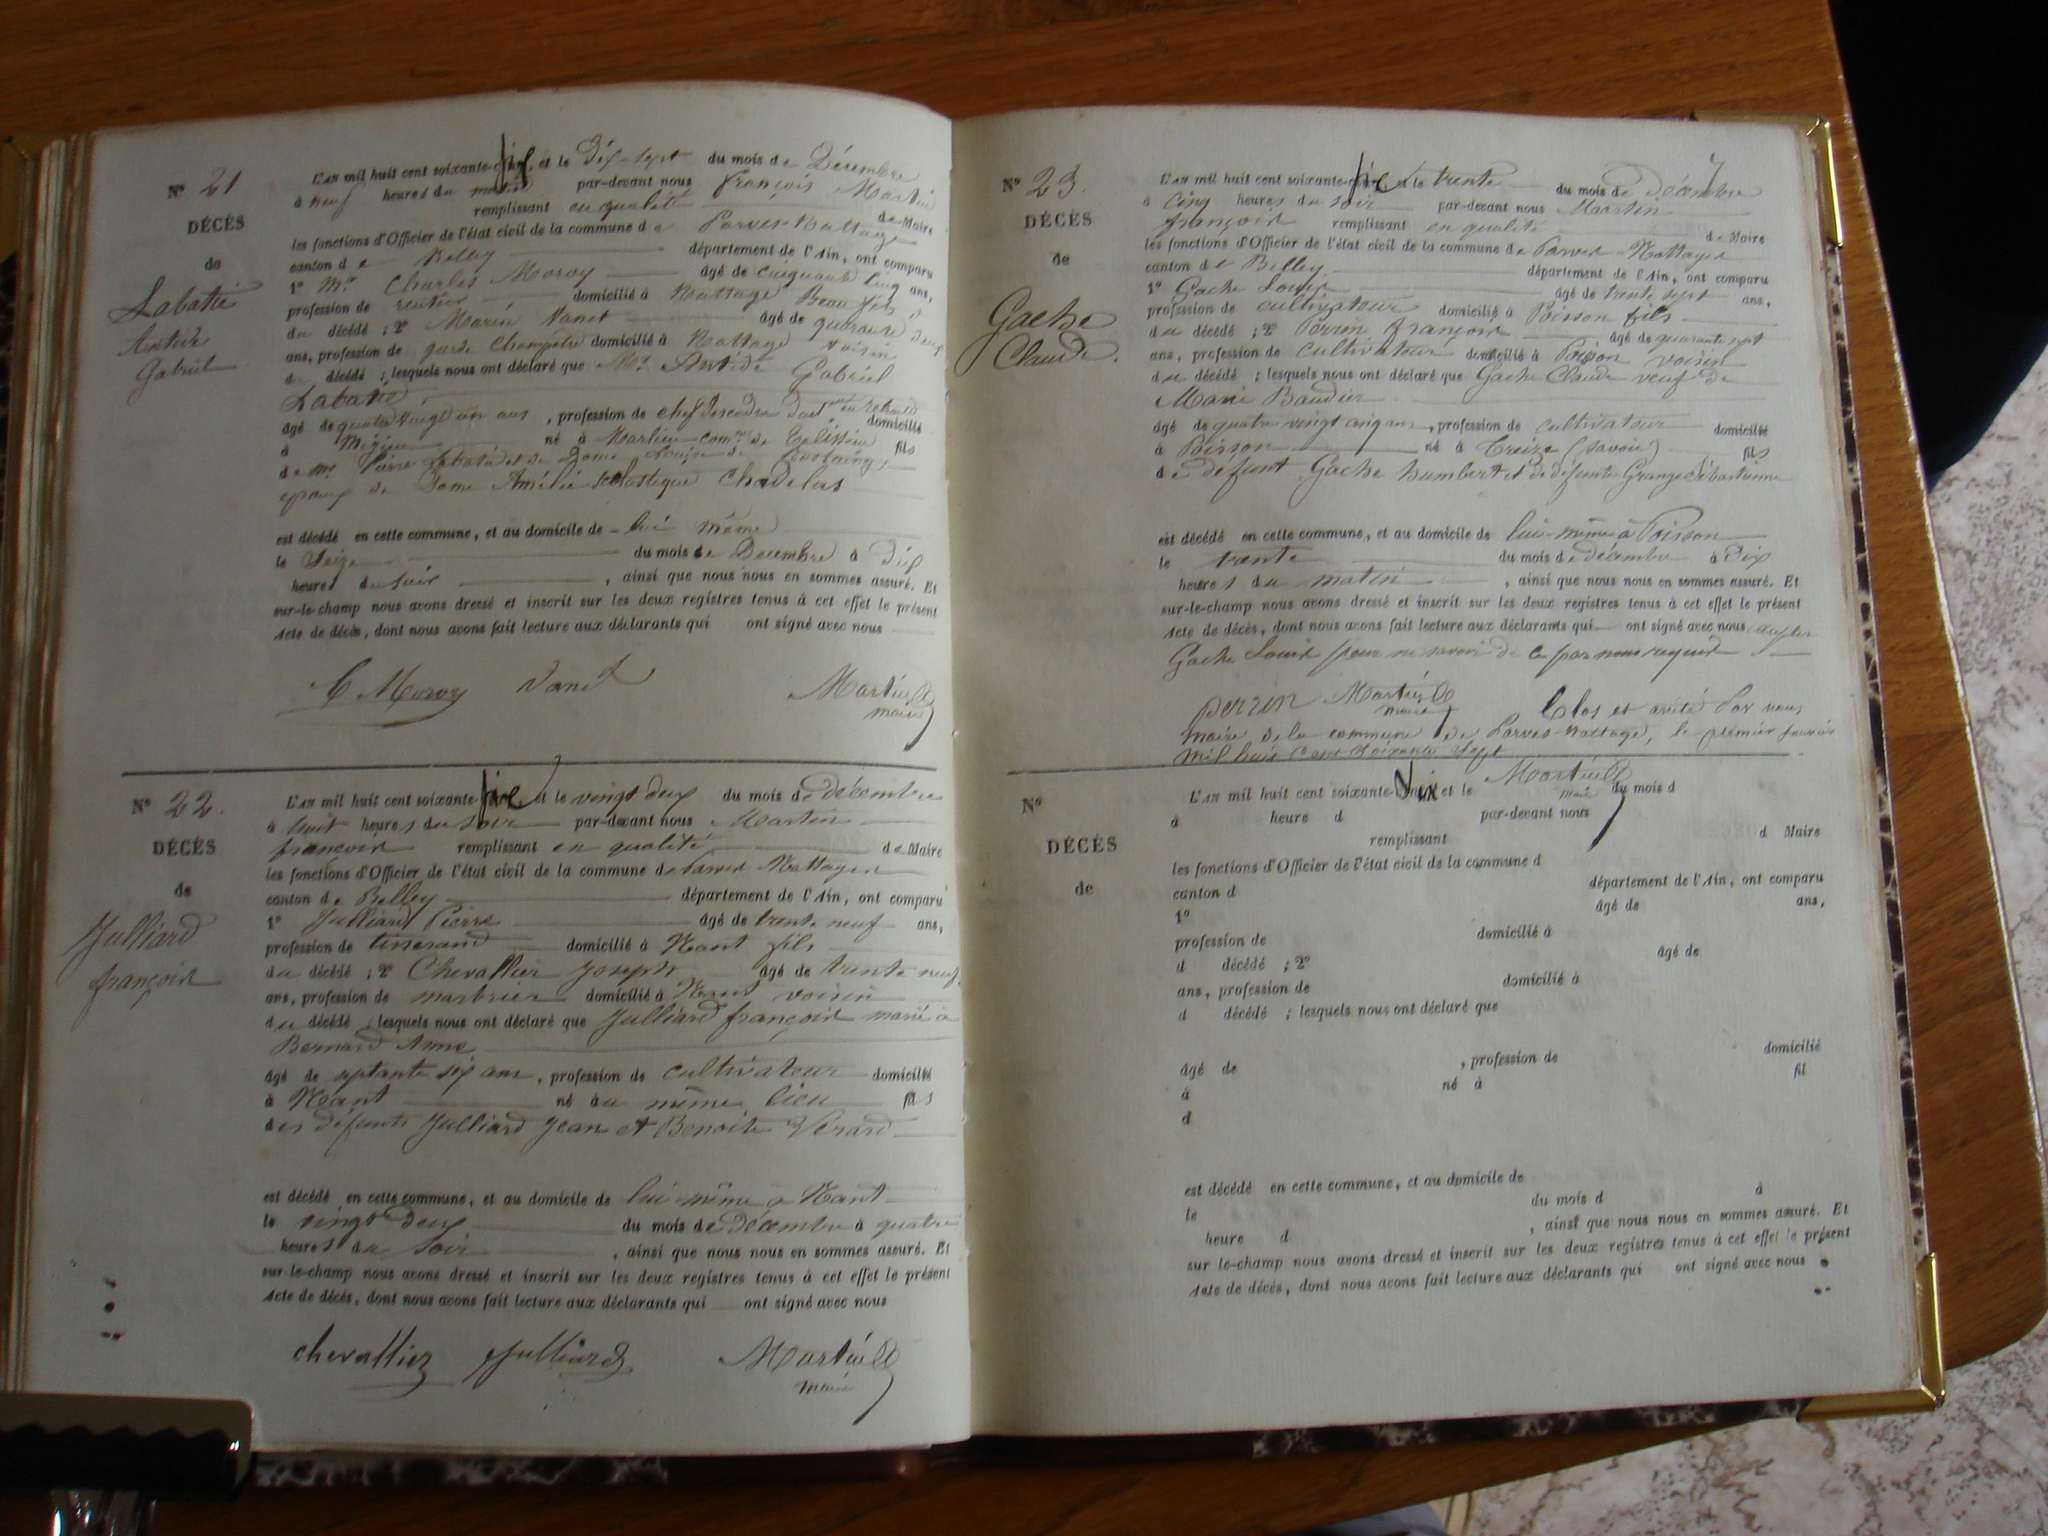 N° 21
DÉCÈS
de
Labatie
Antide
Gabriel
L'AN mil huit cent soixante-six, et le Dix-sept du mois de Décembre
à neuf heures du matin par-devant nous François Martin
remplissant en qualité de Maire
les fonctions d'Officier de l'état civil de la commune de Parves-Nattage
canton de Belley département de l'Ain, ont comparu
1° Mr Charles Moroy âgé de cinquante cinq ans,
profession de rentier domicilié à Nattage Beau fils
du décédé ; 2° Marin Vanet âgé de quarante deux
ans, profession de garde champetre domicilié à Nattage voisin
du décédé ; lesquels nous ont déclaré que Mr Antide Gabriel
Labatie
âgé de quatre vingt un ans, profession de chef d'escadron en retraite domicilié
à né à commne de fils
de mr Pierre Labatie et de Dame Louise de
epoux de Dame Amélie Scholastique Chadelas
est décédé en cette commune, et au domicile de lui même
le Seize du mois de Decembre à Dix
heures du soir, ainsi que nous nous en sommes assuré. Et
sur-le-champ nous avons dressé et inscrit sur les deux registres tenus à cet effet le présent
Acte de décès, dont nous avons fait lecture aux déclarants qui ont signé avec nous
C Moroy Vanet Martin
maire
N° 22.
DÉCÈS
de
Julliard
françois
L'AN mil huit cent soixante-six et le vingt deux du mois de décembre
à huit heures du soir par-devant nous Martin
françois remplissant en qualité de Maire
les fonctions d'Officier de l'état civil de la commune de Parves Nattages
canton de Belley département de l'Ain, ont comparu
1° Julliard Pierre âgé de trente neuf ans,
profession de tisserand domicilié à Nant fils
du décédé ; 2° Chevallier Joseph âgé de trente neuf
ans, profession de marbrier domicilié à Nant voisin
du décédé ; lesquels nous ont déclaré que Julliard françois marié à
Bernard Anne
âgé de septante six ans, profession de cultivateur domicilié
à Nant né au même lieu fils
des défunts Julliard Jean et Benoite Vérard
est décédé en cette commune, et au domicile de lui même à Nant
le vingt deux du mois de décembre à quatre
heures du soir, ainsi que nous nous en sommes assuré. Et
sur-le-champ nous avons dressé et inscrit sur les deux registres tenus à cet effet le présent
Acte de décès, dont nous avons fait lecture aux déclarants qui ont signé avec nous
chevallier Julliard Martin
maire
N° 23.
DÉCÈS
de
Gache
Claude.
L'AN mil huit cent soixante-six et le trente du mois de décembre
à cinq heures du soir par-devant nous Martin
françois remplissant en qualité de Maire
les fonctions d'Officier de l'état civil de la commune de Parves Nattages
canton de Belley département de l'Ain, ont comparu
1° Gache Louis âgé de trente sept ans,
profession de cultivateur domicilié à Poisson fils
du décédé ; 2° Perrin françois âgé de quarante sept
ans, profession de cultivateur domicilié à Poisson voisin
du décédé ; lesquels nous ont déclaré que Gache Claude veuf de
Marie Baudier
âgé de quatre vingt cinq ans, profession de cultivateur domicilié
à Poisson né à Treize (Savoie) fils
de défunt Gache humbert et de défunte Grange Sébastienne
est décédé en cette commune, et au domicile de lui-même à Poisson
le trente du mois de décembre à Dix
heures du matin, ainsi que nous nous en sommes assuré. Et
sur-le-champ nous avons dressé et inscrit sur les deux registres tenus à cet effet le présent
Acte de décès, dont nous avons fait lecture aux déclarants qui ont signé avec nous
Gache Louis pour ne savoir de ce par nous requis
perrin Martin Clos et arrêté Par nous
maire
maire de la commune de Parves-Nattage, le premier janvier
mil huit cent soixante sept
Martin
maire
N°
DÉCÈS
de
L'AN mil huit cent soixante-six et le du mois d
à heure d par-devant nous
remplissant d Maire
les fonctions d'Officier de l'état civil de la commune d
canton d département de l'Ain, ont comparu
1° âgé de ans,
profession de domicilié à
d décédé ; 2° âgé de
ans, profession de domicilié à
d décédé ; lesquels nous ont déclaré que
âgé de , profession de domicilié
à né à fil
d
est décédé en cette commune, et au domicile de
le du mois d à
heure d , ainsi que nous nous en sommes assuré. Et
sur le-champ nous avons dressé et inscrit sur les deux registres tenus à cet effet le présent
Acte de décès, dont nous avons fait lecture aux déclarants qui ont signé avec nous